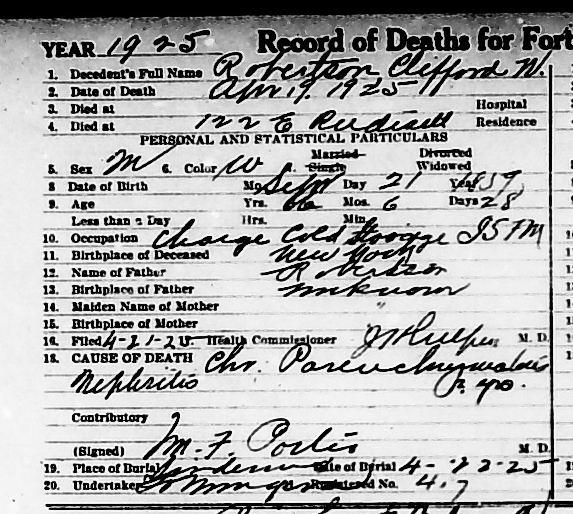 YEAR 1925 Record of Deaths for Fort
1. Decedent's Full Name Robertson Clifford W.
2. Date of Death Apr 19. 1925
3. Died at Hospital
4. Died at 122 E Rudisill Residence
PERSONAL AND STATISTICAL PARTICULARS
Married Divorced
5. Sex M 6. Color W Single Widowed
8 Date of Birth Mo. Sept Day 21 Year 1859
9. Age Yrs. Mos. 6 Days 28
Less than a Day Hrs. Min.
10. Occupation Charge Cold Storage
11. Birthplace of Deceased New York
12. Name of Father Robertson
13. Birthplace of Father unknown
14. Maiden Name of Mother "
15. Birthplace of Mother
16. Filed 4-21-25 Health Commissioner M. D.
18. CAUSE OF DEATH Chr. Parenchymatous
Nephritis yrs.
Contributory
(Signed) M. F. Portis M. D.
19. Place of Burial Date of Burial 4-22-25
20. Undertaker Registered No. 47